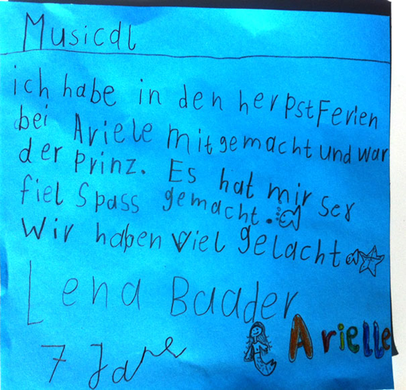 Musical
ich habe in den herpstFerien
bei Ariele mitgemacht und war
der prinz. Es hat mir ser
fiel Spass gemacht.
Wir haben viel gelacht
Lena Baader
Arielle
7 Jare